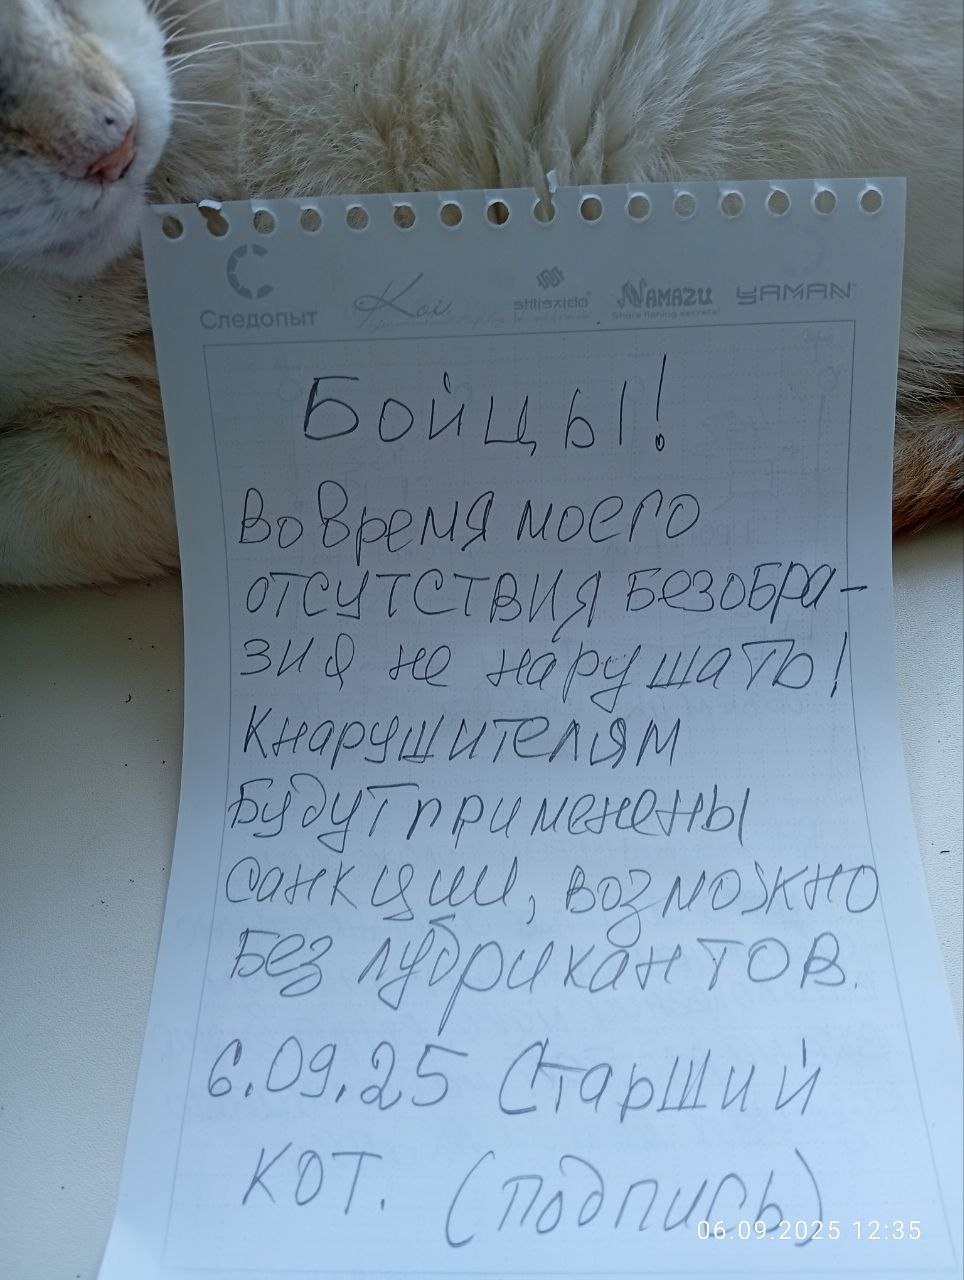 Следопыт Koi shiisaido NAMAZU YAMAN
Share fishing secrets!
Бойцы!
Во время моего
отсутствия безобра-
зия не нарушать!
К нарушителям
будут применены
санкции, возможно
без лубрикантов.
6.09.25 Старший
кот. (подпись)
06.09.2025 12:35